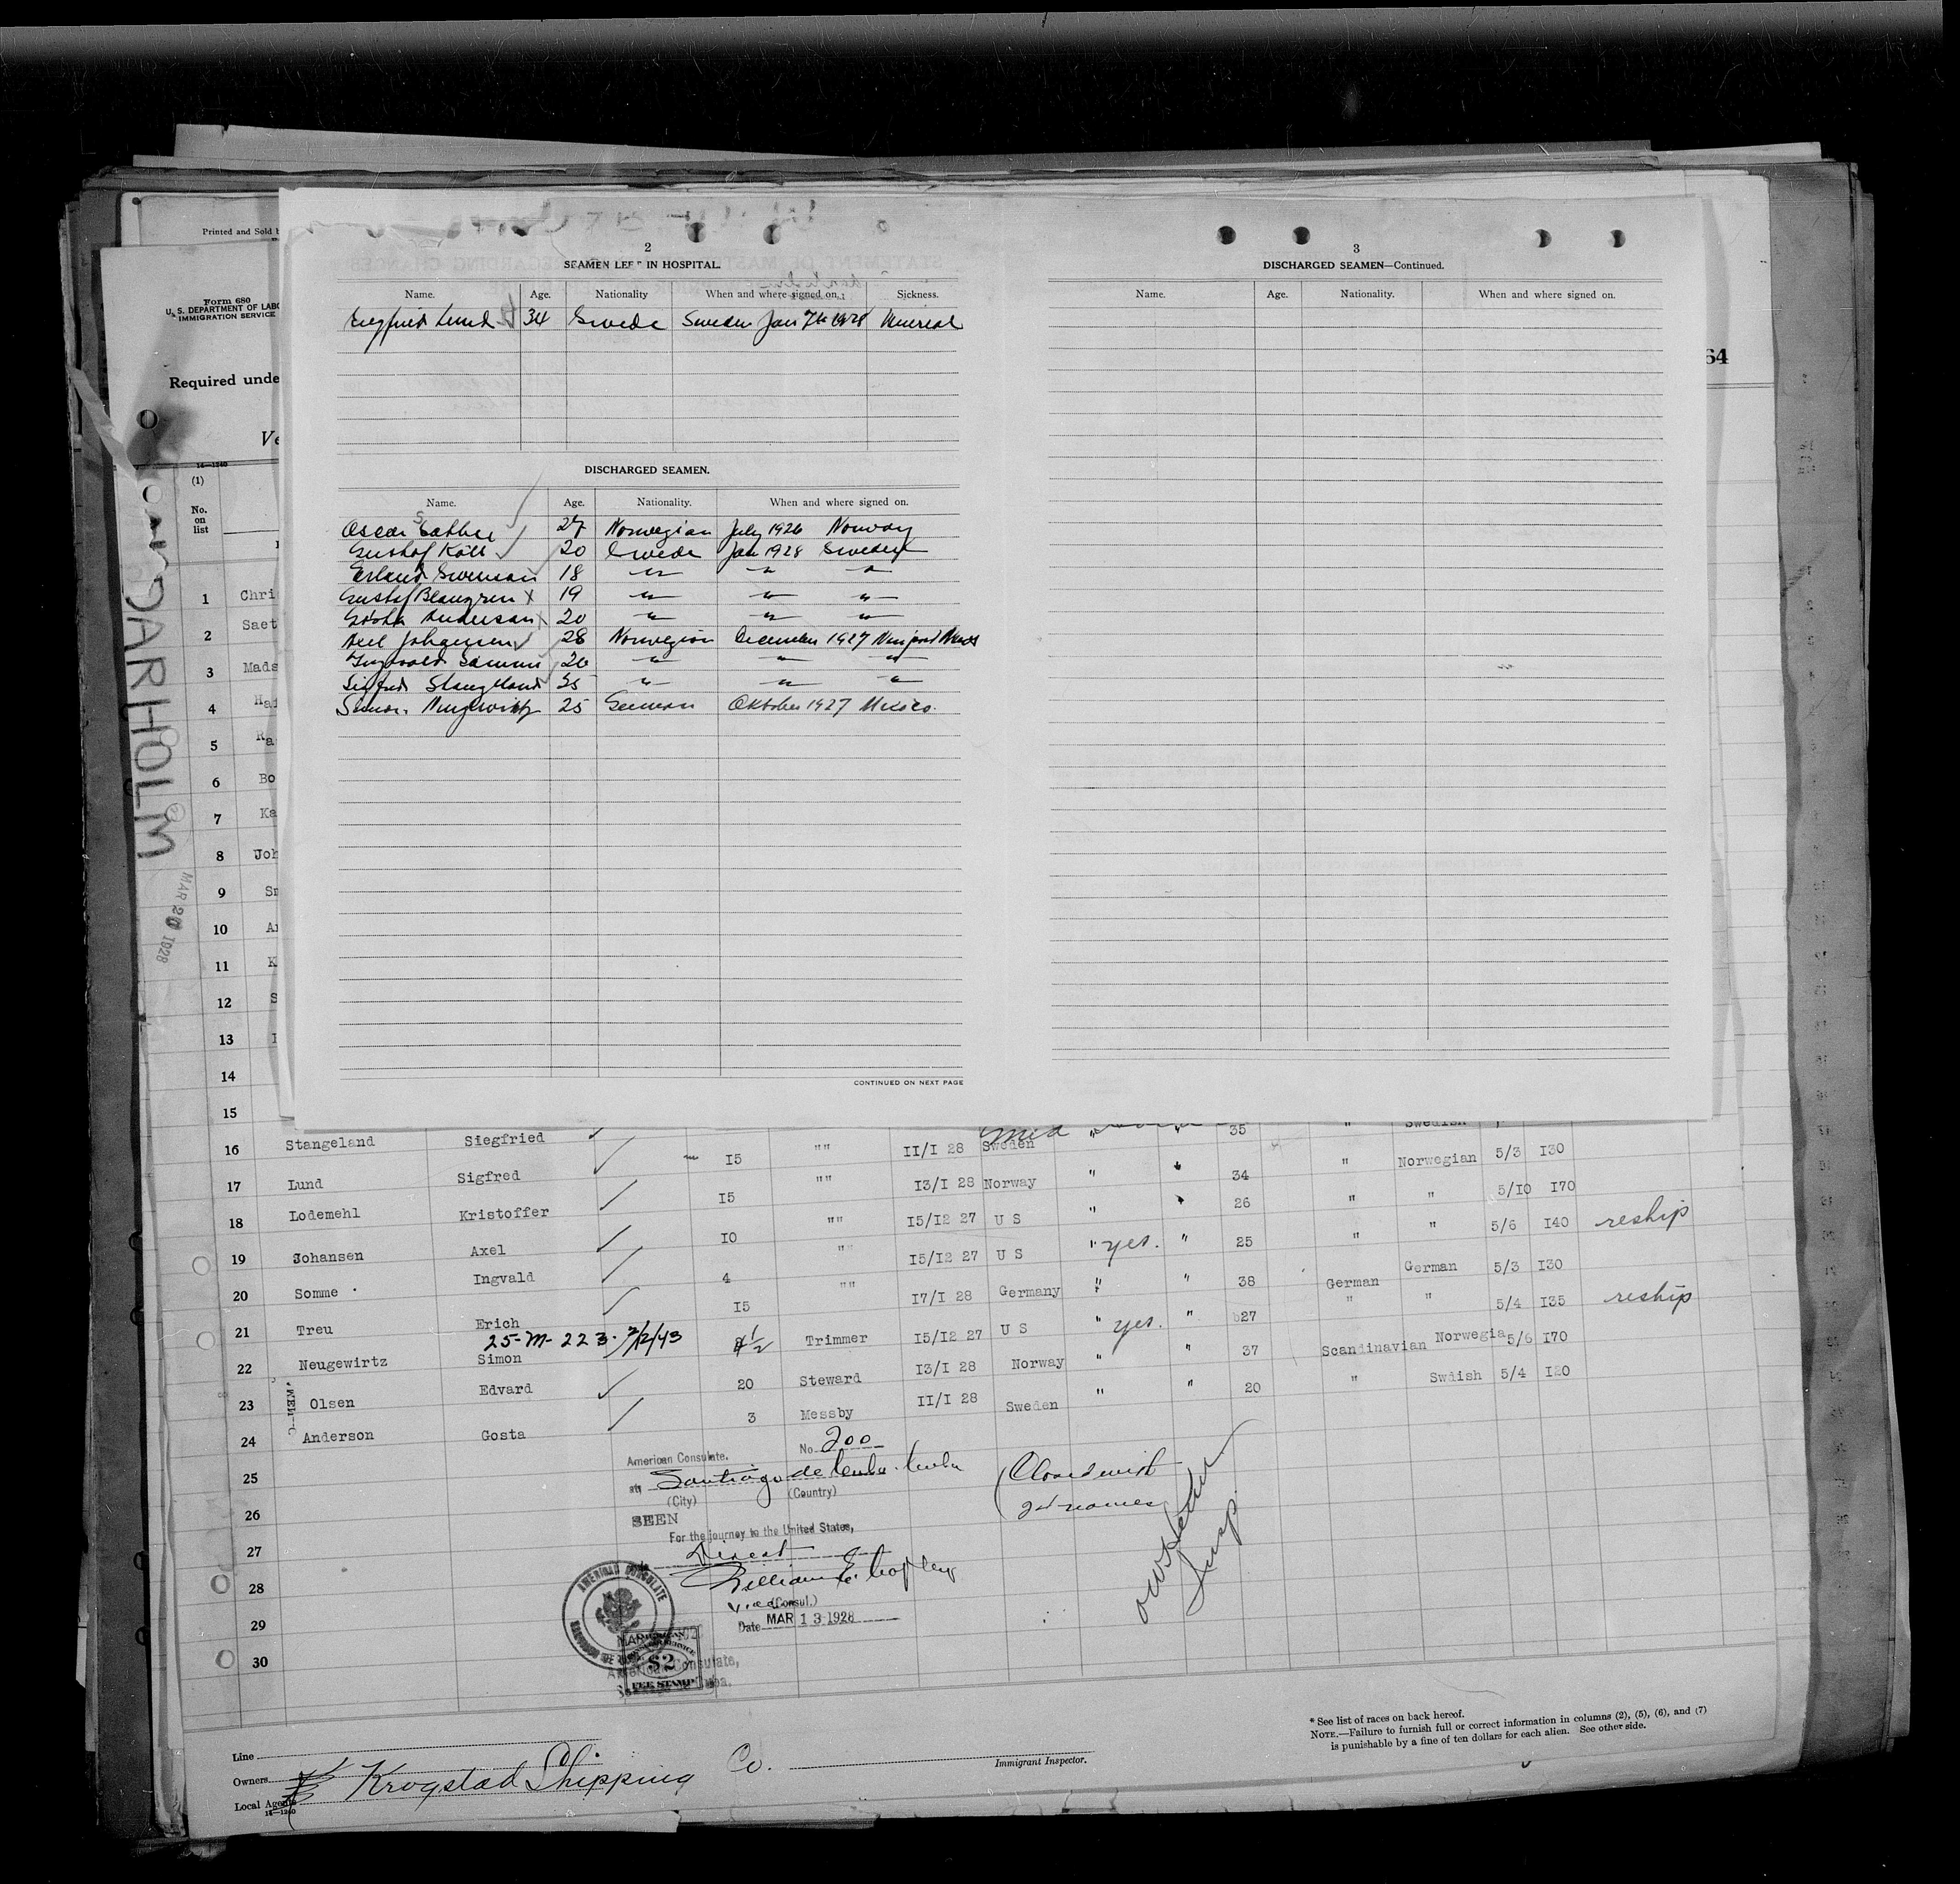 Printed and Sold b
Form 680
U. S. DEPARTMENT OF LABO
IMMIGRATION SERVICE
Required unde
Ve
14—1240
(1)
No.
on
list
64
DARHOLM
MAR 20 1928
2
SEAMEN LEFT IN HOSPITAL.
Name. Age. Nationality When and where signed on. Sickness.
Siegfried Lund 34 Swede Sweden Jan 7th 1928 Venereal
DISCHARGED SEAMEN.
Name. Age. Nationality. When and where signed on.
Oscar 27 Norwegian July 1926 Norway
Gustof Käll 20 Swede Jan 1928 Sweden
Erland Swenson 18 " " "
Gustaf Blomgren X 19 " " "
Gösta Anderson 20 " " "
Axel Johansen 28 Norwegian December 1927
Ingvald Somme 26 " " "
Sigfred Stangeland 35 " " "
Simon Neugewirtz 25 German Oktober 1927 Mexico.
CONTINUED ON NEXT PAGE
3
DISCHARGED SEAMEN—Continued.
Name. Age. Nationality. When and where signed on.
1 Chri
2 Saet
3 Mads
4 Ha
5 Ra
6 Bo
7 Ka
8 Joh
9 Sr
10 A
11 K
12 S
13
14
15
16 Stangeland Siegfried "" 11/I 28 Sweden " 35 " Swedish
17 Lund Sigfred 15 "" 13/I 28 Norway " 34 " Norwegian 5/3 130
18 Lodemehl Kristoffer 15 "" 15/12 27 U S " 26 " " 5/10 170
19 Johansen Axel 10 "" 15/12 27 U S " yes. " 25 " " 5/6 140 reship
20 Somme Ingvald 4 "" 17/I 28 Germany " " 38 German German 5/3 130
21 Treu Erich 15 Trimmer 15/12 27 U S " yes. " 27 " " 5/4 135 reship
25-M-223- 7/2/43
22 Neugewirtz Simon 4½ Steward 13/I 28 Norway " " 37 Scandinavian Norwegia 5/6 170
23 Olsen Edvard 20 Messby 11/I 28 Sweden " " 20 " Swdish 5/4 120
24 Anderson Gosta 3
25
26
27
28
29
30
American Consulate.
No. 200
at Santiago de Cuba. Cuba
(City) (Country)
SEEN
For the journey to the United States,
Direct
William E. Copley
Vice (Consul.)
Date MAR 13 1928
AMERICAN CONSULATE
$2
FEE STAMP
American Consulate,
Closed with
24 names
Insp.
Line
Owners
Local Agents Krogstad Shipping Co.
14—1240
Immigrant Inspector.
* See list of races on back hereof.
NOTE.—Failure to furnish full or correct information in columns (2), (5), (6), and (7)
is punishable by a fine of ten dollars for each alien. See other side.